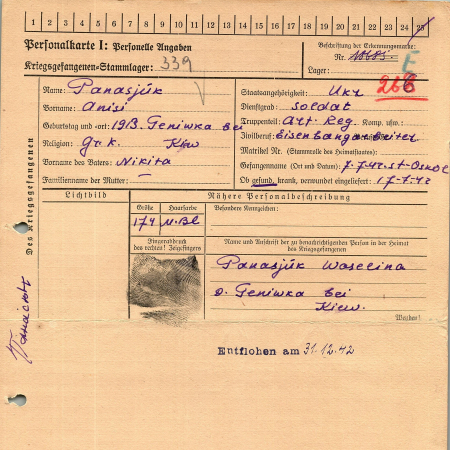 1 2 3 4 5 6 7 8 9 10 11 12 13 14 15 16 17 18 19 20 21 22 23 24 25
Personalkarte I: Personelle Angaben
Kriegsgefangenen-Stammlager: 339
Beschriftung der Erkennungsmarke
Nr.
Lager:
268
Des Kriegsgefangenen
Name: Panasjuk
Vorname: Anisi
Geburtstag und -ort: 1913. Geniwka bei
Kiew
Religion: Gr. k.
Vorname des Vaters: Nikita
Familienname der Mutter: —
Staatsangehörigkeit: Ukr
Dienstgrad: Soldat
Truppenteil: Art. Reg. Komp. usw.:
Zivilberuf: Eisenbanarbeiter
Matrikel Nr. (Stammrolle des Heimatstaates):
Gefangennahme (Ort und Datum): 7.7.42 St-Oskol
Ob gesund, krank, verwundet eingeliefert: 17.7.42
Lichtbild
Nähere Personalbeschreibung
Größe
Haarfarbe
Besondere Kennzeichen:
174
Fingerabdruck
des rechten! Zeigefingers
Name und Anschrift der zu benachrichtigenden Person in der Heimat
des Kriegsgefangenen
Panasjuk Waselina
D. Geniwka bei
Kiew.
Wenden!
Панасюк
Entflohen am 31.12.42